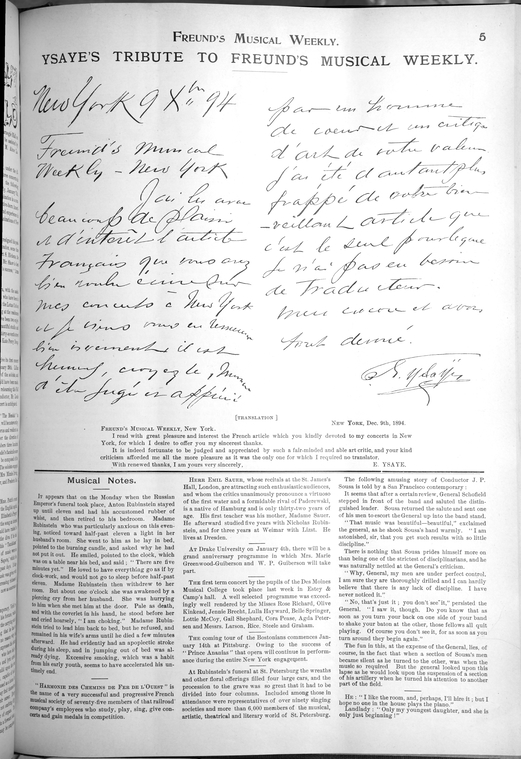 FREUND'S MUSICAL WEEKLY.
5
YSAYE'S TRIBUTE TO FREUND'S MUSICAL WEEKLY.
New York 9 Xth 94
Freund's Musical
Weekly - New York
J'ai lu avec
beaucoup de plaisir
et d'intérêt l'article
Français que vous avez
bien voulu écrire sur
mes concerts à New York
et je viens vous en remercier
bien vivement il est
heureux, croyez le,
d'être jugé et apprécié
par un homme
de coeur et un critique
d'art de votre valeur
j'ai été d'autant plus
frappé de votre bien
-veillant article que
c'est le seul pour lequel
je n'ai pas eu besoin
de Traducteur.
merci encore et à vous
tout dévoué.
E. Ysaÿe
[TRANSLATION]
NEW YORK, Dec. 9th, 1894.
FREUND'S MUSICAL WEEKLY, New York.
I read with great pleasure and interest the French article which you kindly devoted to my concerts in New
York, for which I desire to offer you my sincerest thanks.
It is indeed fortunate to be judged and appreciated by such a fair-minded and able art critic, and your kind
criticism afforded me all the more pleasure as it was the only one for which I required no translator.
With renewed thanks, I am yours very sincerely,
E. YSAYE.
Musical Notes.
It appears that on the Monday when the Russian
Emperor's funeral took place, Anton Rubinstein stayed
up until eleven and had his accustomed rubber of
whist, and then retired to his bedroom. Madame
Rubinstein who was particularly anxious on this even-
ing, noticed toward half-past eleven a light in her
husband's room. She went to him as he lay in bed,
pointed to the burning candle, and asked why he had
not put it out. He smiled, pointed to the clock, which
was on a table near his bed, and said: "There are five
minutes yet." He loved to do everything go as if by
clock-work, and would not go to sleep before half-past
eleven. Madame Rubinstein then withdrew to her
room. But about one o'clock she was awakened by a
piercing cry from her husband. She was hurrying
to him when she met him at the door. Pale as death,
and with the coverlet in his hand, he stood before her
and cried hoarsely, "I am choking." Madame Rubin-
stein tried to lead him back to bed, but he refused, and
remained in his wife's arms until he died a few minutes
afterward. He had evidently had an apoplectic stroke
during his sleep, and in jumping out of bed was al-
ready dying. Excessive smoking, which was a habit
from his early youth, seems to have accelerated his un-
timely end.
"HARMONIE DES CHEMINS DE FER DE L'OUEST" is
the name of a very successful and progressive French
musical society of seventy-five members of that railroad
company's employees who study, play, sing, give con-
certs and gain medals in competition.
HERR EMIL SAUER, whose recitals at the St. James's
Hall, London, are attracting such enthusiastic audiences,
and whom the critics unanimously pronounce a virtuoso
of the first water and a formidable rival of Paderewski,
is a native of Hamburg and is only thirty-two years of
age. His first teacher was his mother, Madame Sauer.
He afterward studied five years with Nicholas Rubin-
stein, and for three years at Weimar with Liszt. He
lives at Dresden.
AT Drake University on January 4th, there will be a
grand anniversary programme in which Mrs. Marie
Greenwood-Guiberson and W. P. Guiberson will take
part.
THE first term concert by the pupils of the Des Moines
Musical College took place last week in Estey &
Camp's hall. A well selected programme was exceed-
ingly well rendered by the Misses Rose Richard, Olive
Kinkend, Jennie Brecht, Lulla Hayward, Belle Springer,
Lottie McCoy, Gail Shephard, Cora Pease, Agda Peter-
sen and Messrs. Larson, Rice, Steele and Graham.
THE coming tour of the Bostonians commences Jan-
uary 14th at Pittsburg. Owing to the success of
"Prince Ananias" that opera will continue in perform-
ance during the entire New York engagement.
At Rubinstein's funeral at St. Petersburg the wreaths
and other floral offerings filled four large cars, and the
procession to the grave was so great that it had to be
divided into four columns. Included among those in
attendance were representatives of over ninety singing
societies and more than 6,000 members of the musical,
artistic, theatrical and literary world of St. Petersburg.
The following amusing story of Conductor J. P.
Sousa is told by a San Francisco contemporary:
It seems that after a certain review, General Schofield
stepped in front of the band and saluted the distin-
guished leader. Sousa returned the salute and sent one
of his men to escort the General up into the band stand.
"That music was beautiful—beautiful," exclaimed
the general, as he shook Sousa's hand warmly. "I am
astonished, sir, that you get such results with so little
discipline."
There is nothing that Sousa prides himself more on
than being one of the strictest of disciplinarians, and he
was naturally nettled at the General's criticism.
"Why, General, my men are under perfect control.
I am sure they are thoroughly drilled and I can hardly
believe that there is any lack of discipline. I have
never noticed it."
"No, that's just it; you don't see it," persisted the
General. "I see it, though. Do you know that as
soon as you turn your back on one side of your band
to shake your baton at the other, those fellows all quit
playing. Of course you don't see it, for as soon as you
turn around they begin again."
The fun in this, at the expense of the General, lies, of
course, in the fact that when a section of Sousa's men
became silent as he turned to the other, was when the
music so required. But the general looked upon this
lapse as he would look upon the suspension of a section
of his artillery when he turned his attention to another
part of the field.
HE: "I like the room, and, perhaps, I'll hire it; but I
hope no one in the house plays the piano."
Landlady: "Only my youngest daughter, and she is
only just beginning!"